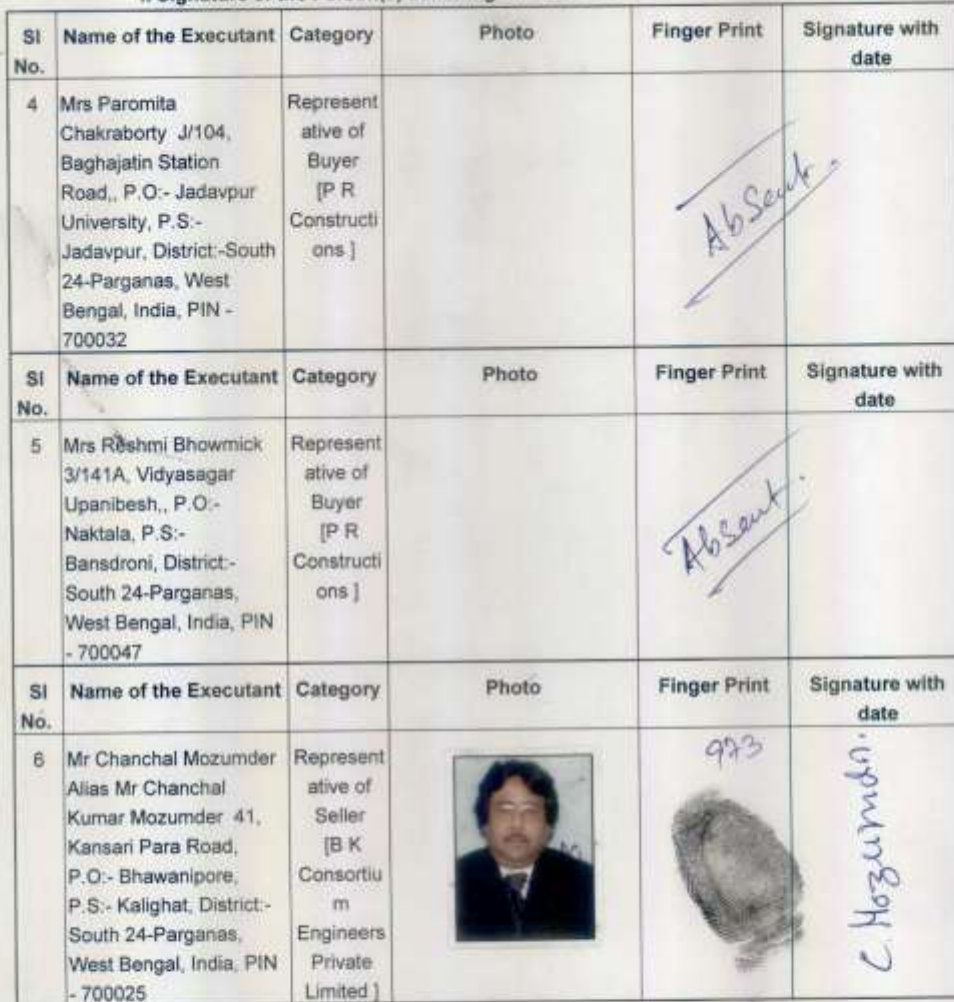 SI No. Name of the Executant Category Photo Finger Print Signature with date
4 Mrs Paromita Chakraborty J/104, Baghajatin Station Road,, P.O:- Jadavpur University, P.S:- Jadavpur, District:-South 24-Parganas, West Bengal, India, PIN - 700032
Representative of Buyer [P R Constructions ]
Absent.
SI No. Name of the Executant Category Photo Finger Print Signature with date
5 Mrs Reshmi Bhowmick 3/141A, Vidyasagar Upanibesh,, P.O:- Naktala, P.S:- Bansdroni, District:- South 24-Parganas, West Bengal, India, PIN - 700047
Representative of Buyer [P R Constructions ]
Absent.
SI No. Name of the Executant Category Photo Finger Print Signature with date
6 Mr Chanchal Mozumder Alias Mr Chanchal Kumar Mozumder 41, Kansari Para Road, P.O:- Bhawanipore, P.S:- Kalighat, District:- South 24-Parganas, West Bengal, India, PIN - 700025
Representative of Seller [B K Consortium Engineers Private Limited ]
973
C. Mozumdr.